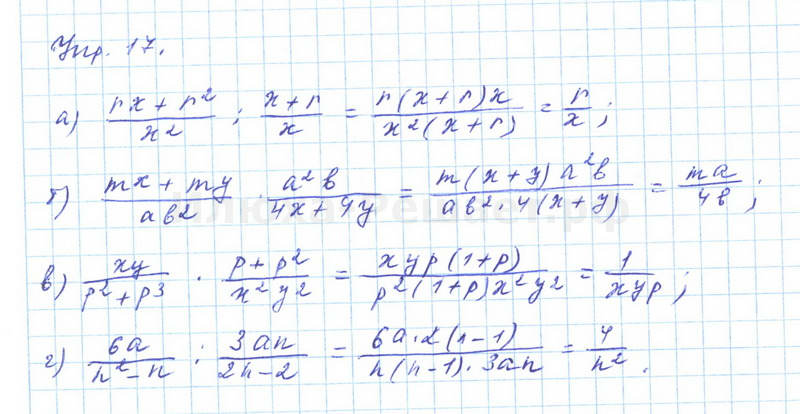 Упр. 17.
а) (nx + n²)/x² : (x + n)/x = n(x + n)x/x²(x + n) = n/x ;
б) (mx + my)/ab² · a²b/(4x + 4y) = m(x + y)a²b/ab² · 4(x + y) = ma/4b ;
в) xy/(p² + p³) · (p + p²)/x²y² = xyp(1 + p)/p²(1 + p)x²y² = 1/xyp ;
г) 6a/(n² - n) : 3an/(2n - 2) = 6a · 2(n - 1)/n(n - 1) · 3an = 4/n² .